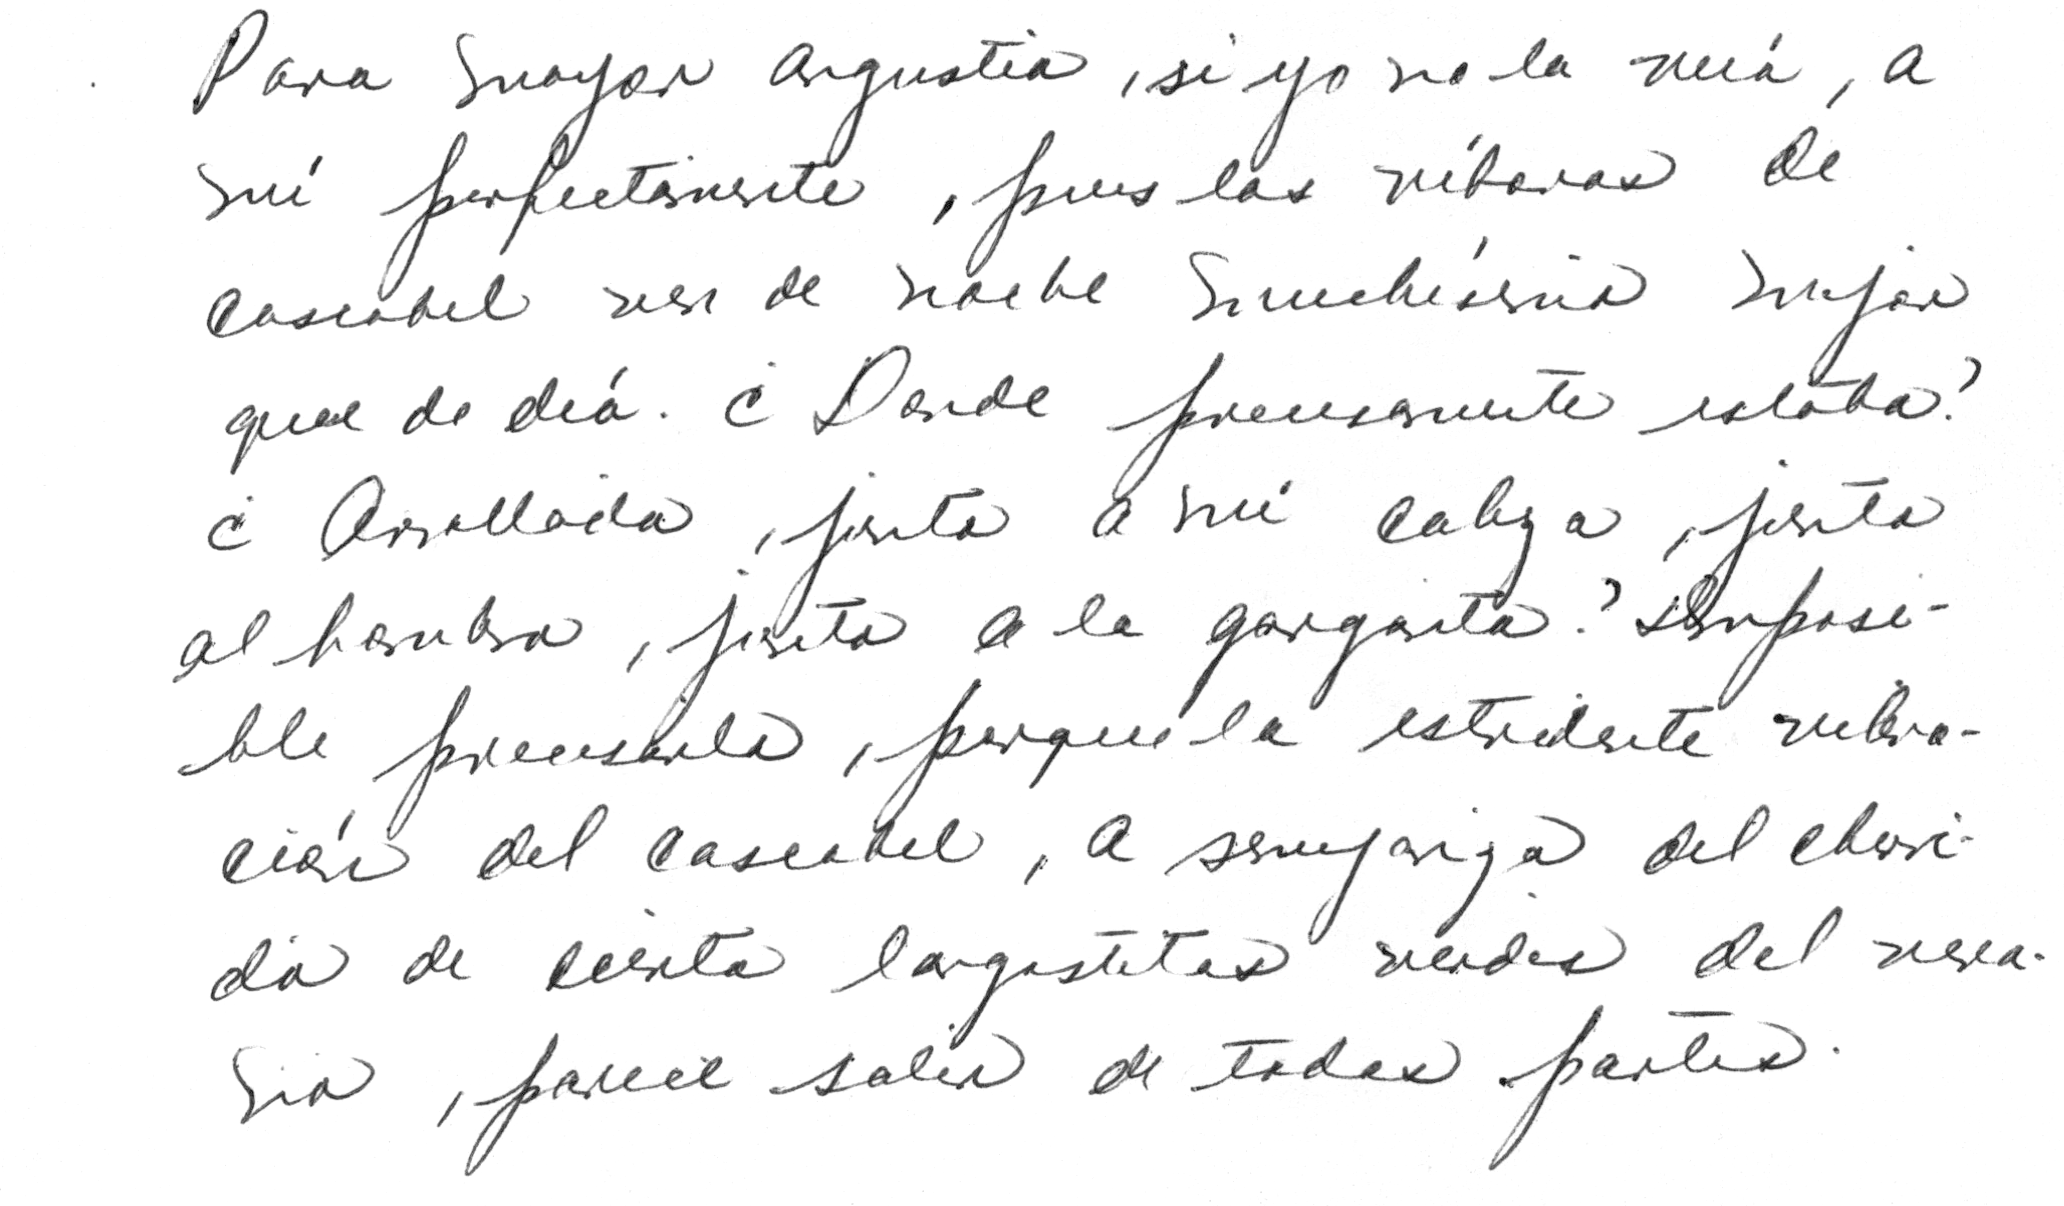 Para mayor angustia, si yo no la veía, a
mí perfectamente, pues las víboras de
cascabel ven de noche muchísimo mejor
que de día. ¿Donde precisamente estaba?
¿Arrollada, junto a mi cabeza, junto
al hombro, junto a la garganta? Imposi-
ble precisarlo, porque la estridente vibra-
ción del cascabel, a semejanza del chirri-
do de cierta langostitas verdes del vera-
no, parece salir de todas partes.